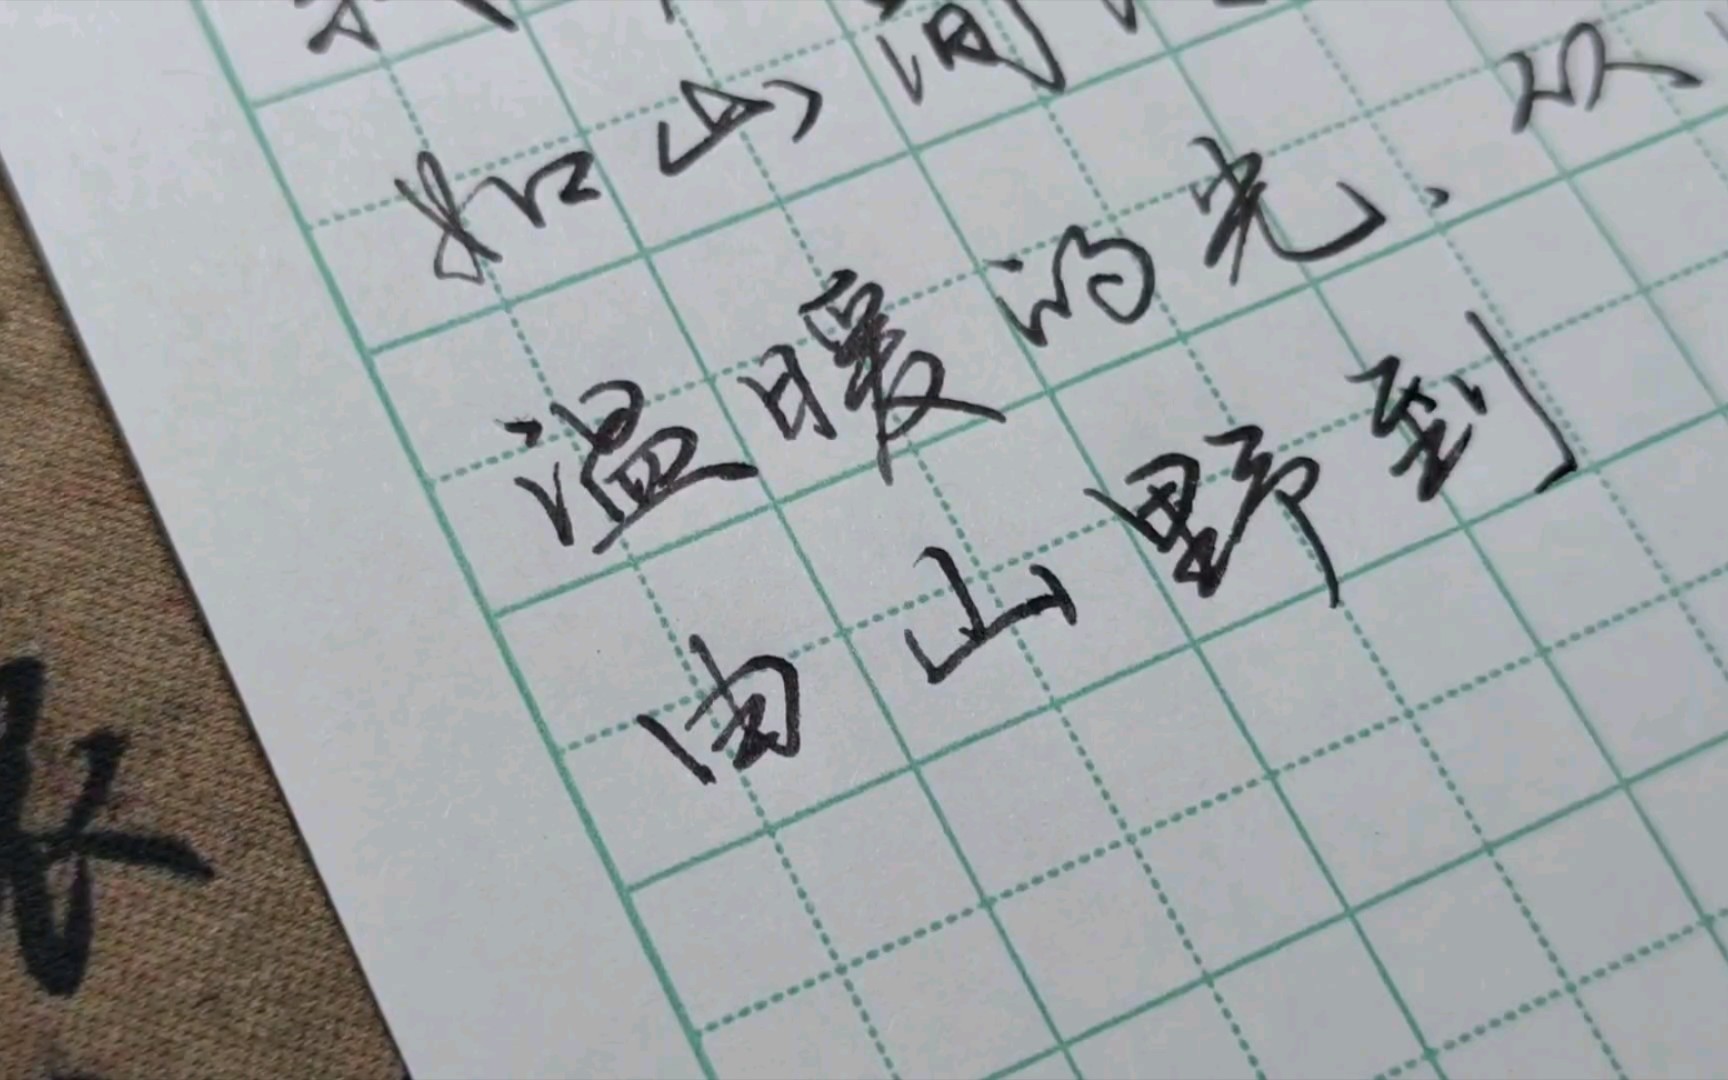 如山间
温暖的光，从
由山野到